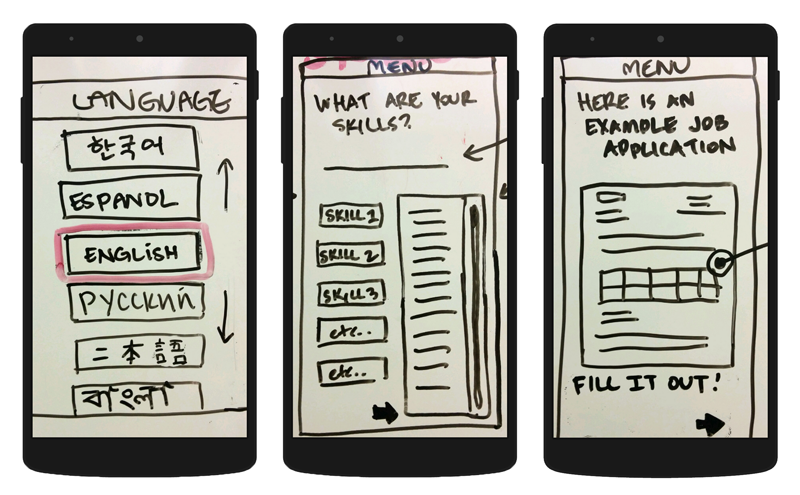 LANGUAGE
한국어
ESPANOL
ENGLISH
РУССКИЙ
二本語
বাংলা
MENU
WHAT ARE YOUR
SKILLS?
SKILL 1
SKILL 2
SKILL 3
etc..
etc..
MENU
HERE IS AN
EXAMPLE JOB
APPLICATION
FILL IT OUT!